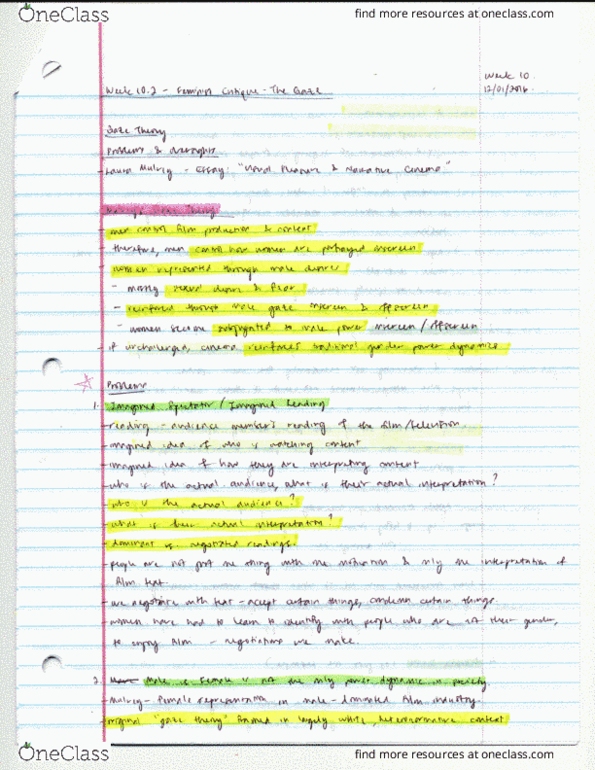 OneClass
find more resources at oneclass.com
Week 10.
12/01/2016
Week 10.2 - Feminist Critique - The Gaze
Gaze Theory
Problems & oversights
- Laura Mulvey - Essay: "Visual Pleasure & Narrative Cinema"
Gaze Theory
- men control film production & content
- therefore, men control how women are portrayed onscreen
- women represented through male desire
- mostly sexual desire & fear
- reinforced through male gaze onscreen & offscreen
- women become subjugated to male power onscreen / offscreen
- if unchallenged, cinema reinforces traditional gender power dynamics
Problems
1. Imagined Spectator / Imagined Reading
- reading - audience member's reading of the film/television.
- imagined idea of who is watching content
- imagined idea of how they are interpreting content
- who is the actual audience, what is their actual interpretation?
- who is the actual audience?
- what is their actual interpretation?
- dominant vs. negotiated readings.
- people are not just one thing with one motivation & only one interpretation of
film text.
- we negotiate with text - accept certain things, condemn certain things.
- women have had to learn to identify with people who are not their gender,
to enjoy film - negotiations we make.
2. Male vs Female is not the only power dynamic in society
- Mulvey - female representation in male-dominated film industry.
- original "gaze theory" framed in largely white, heteronormative context
OneClass
find more resources at oneclass.com